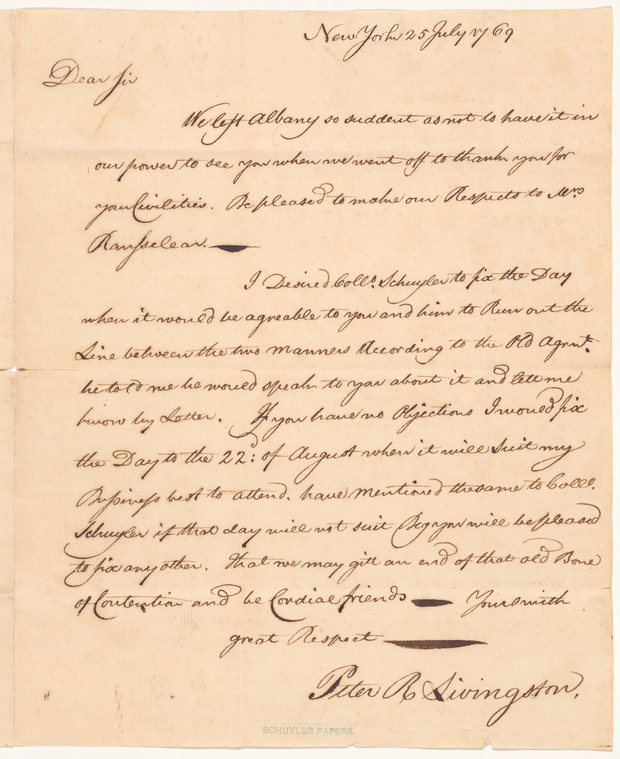 New York 25 July 1769
Dear Sir
We left Albany so suddent as not to have it in
our power to see you when we went off to thank you for
your Civilities. Be pleased to make our Respects to Mrs
Ransselear.
I Desired Collo. Schuyler to fix the Day
when it would be agreable to you and him to Run out the
Line between the two manners According to the Old Agrnt.
he told me he would speak to you about it and lett me
know by Letter. If you have no Objections I would fix
the Day to the 22d: of August when it will suit my
Bussiness best to attend. have mentioned the same to Collo.
Schuyler if that day will not suit Beg you will be pleased
to fix any other. that we may gitt an end of that old Bone
of Contention and be Cordial friends — Yours with
great Respect —
Peter R Livingston,
SCHUYLER PAPERS.